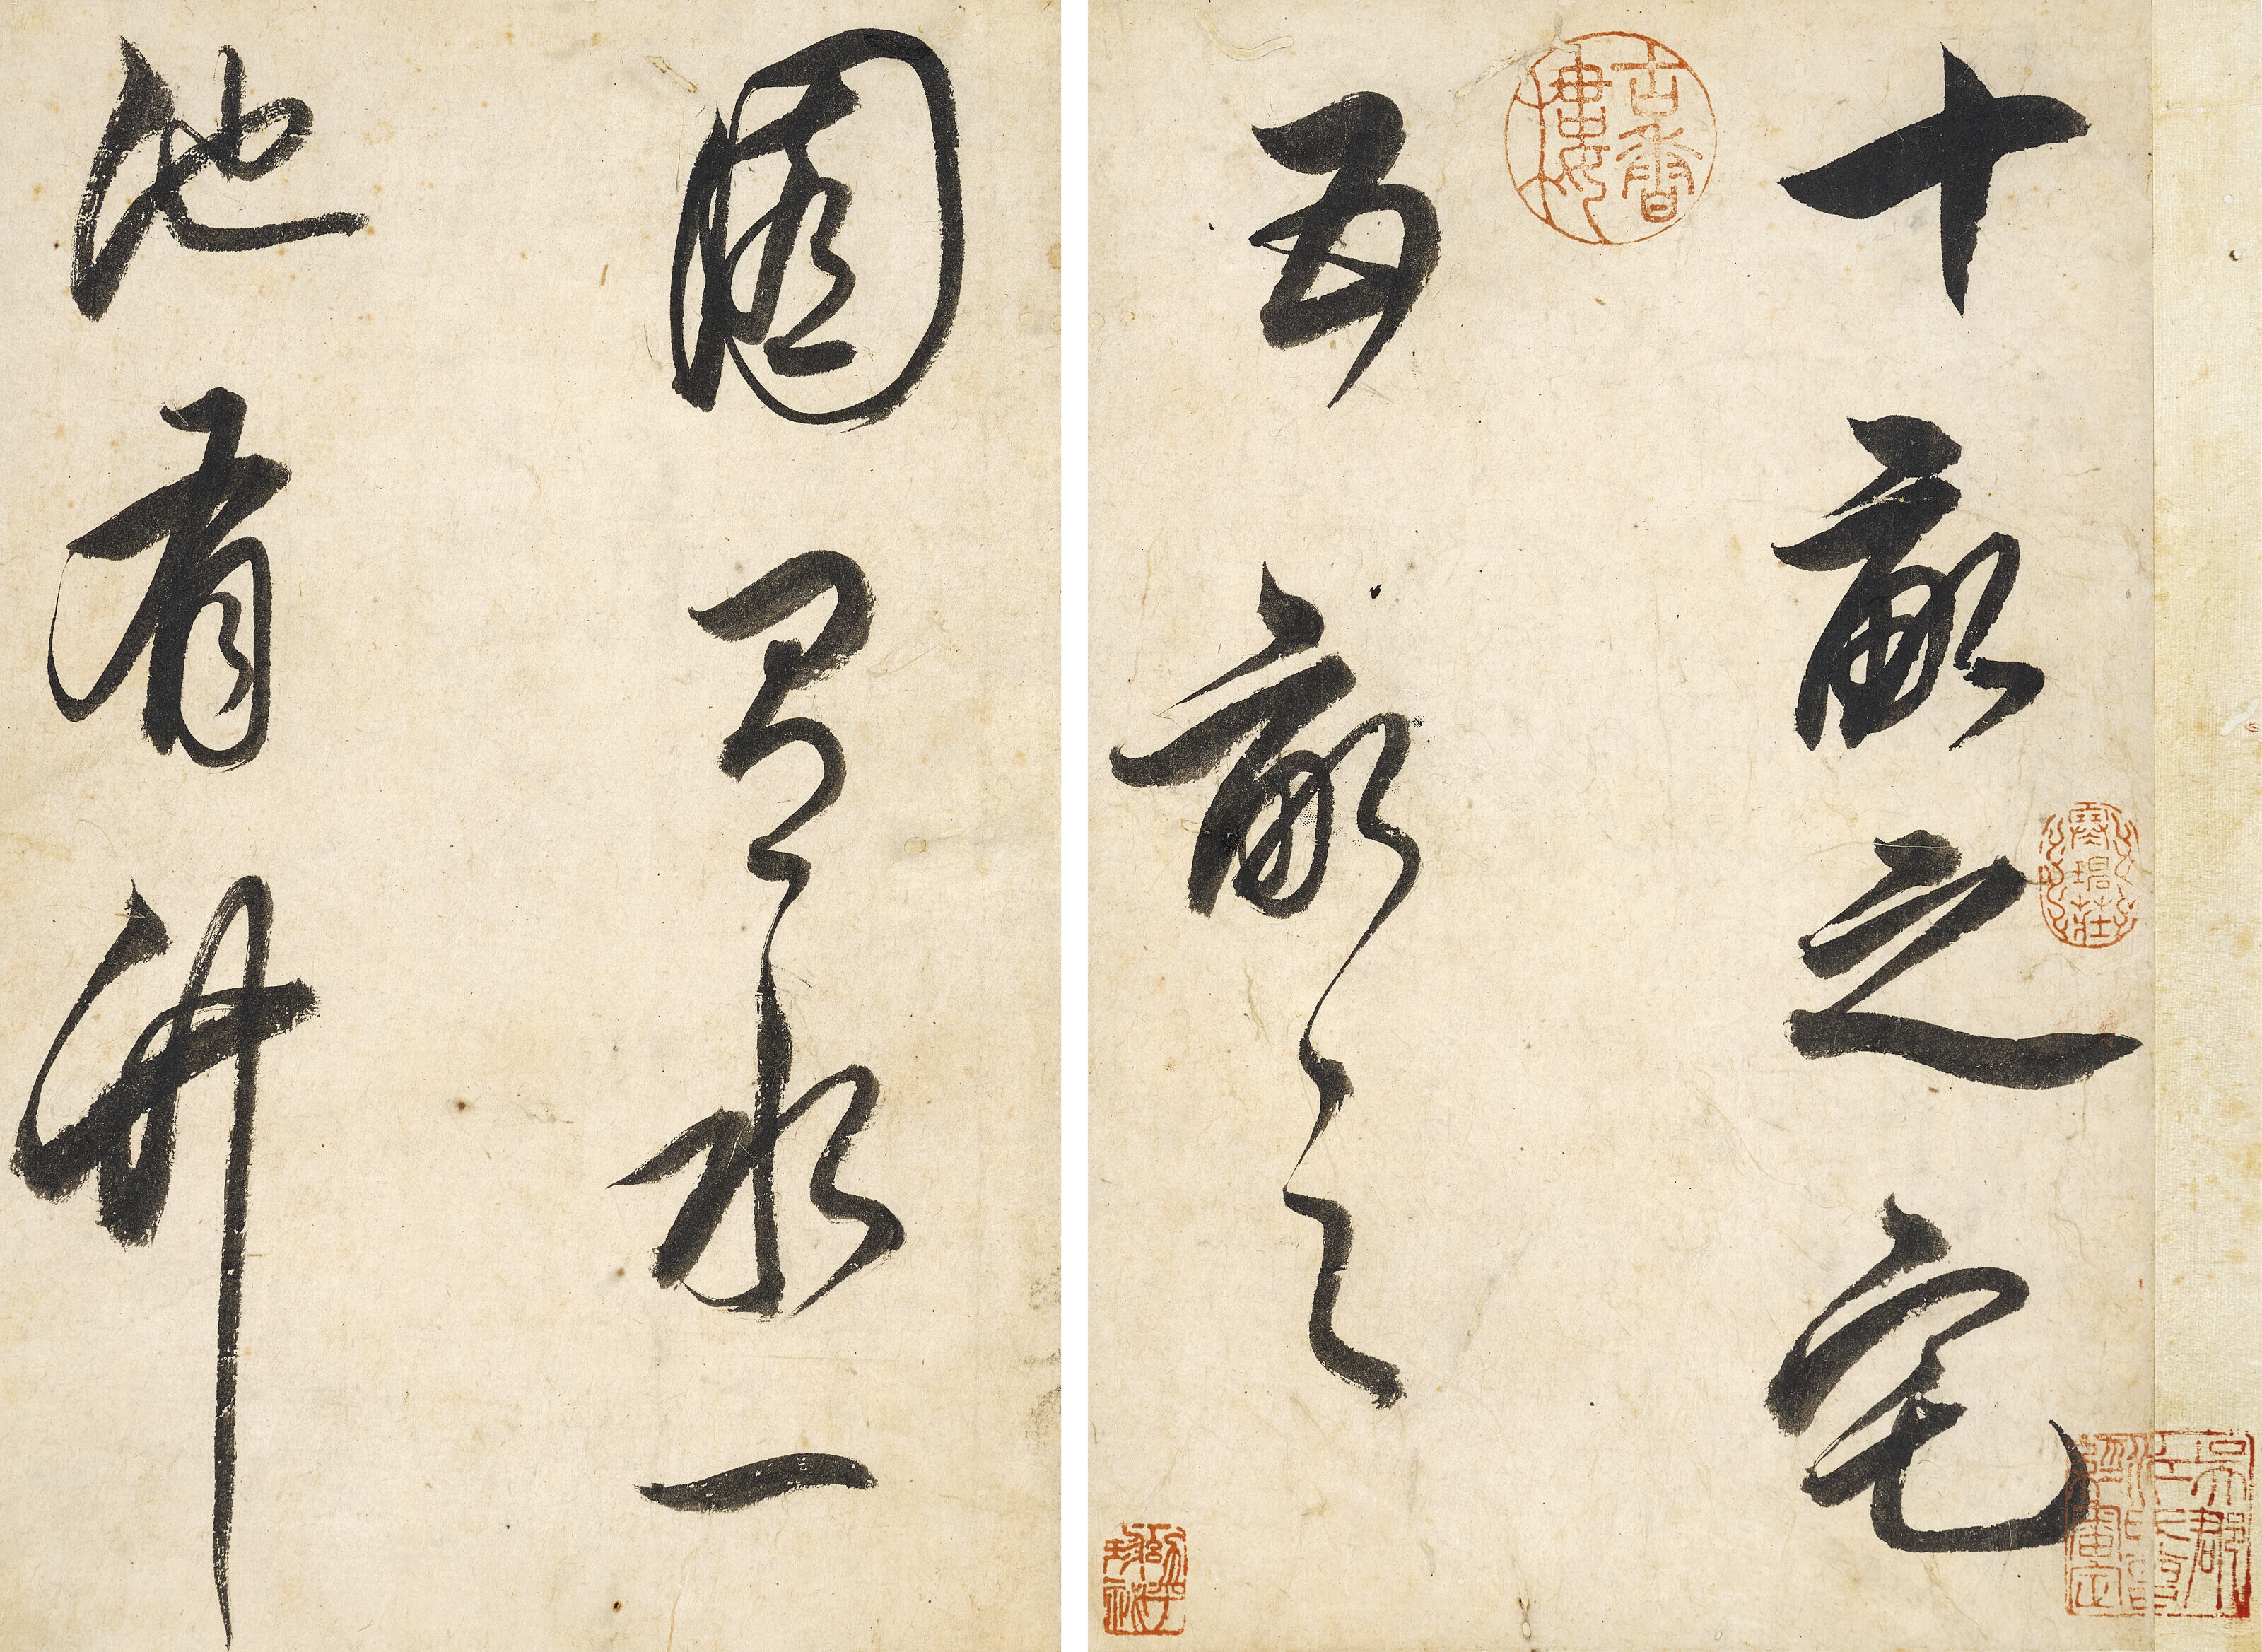 十畝之宅
古香樓
五畝之
園有水一
池有竹